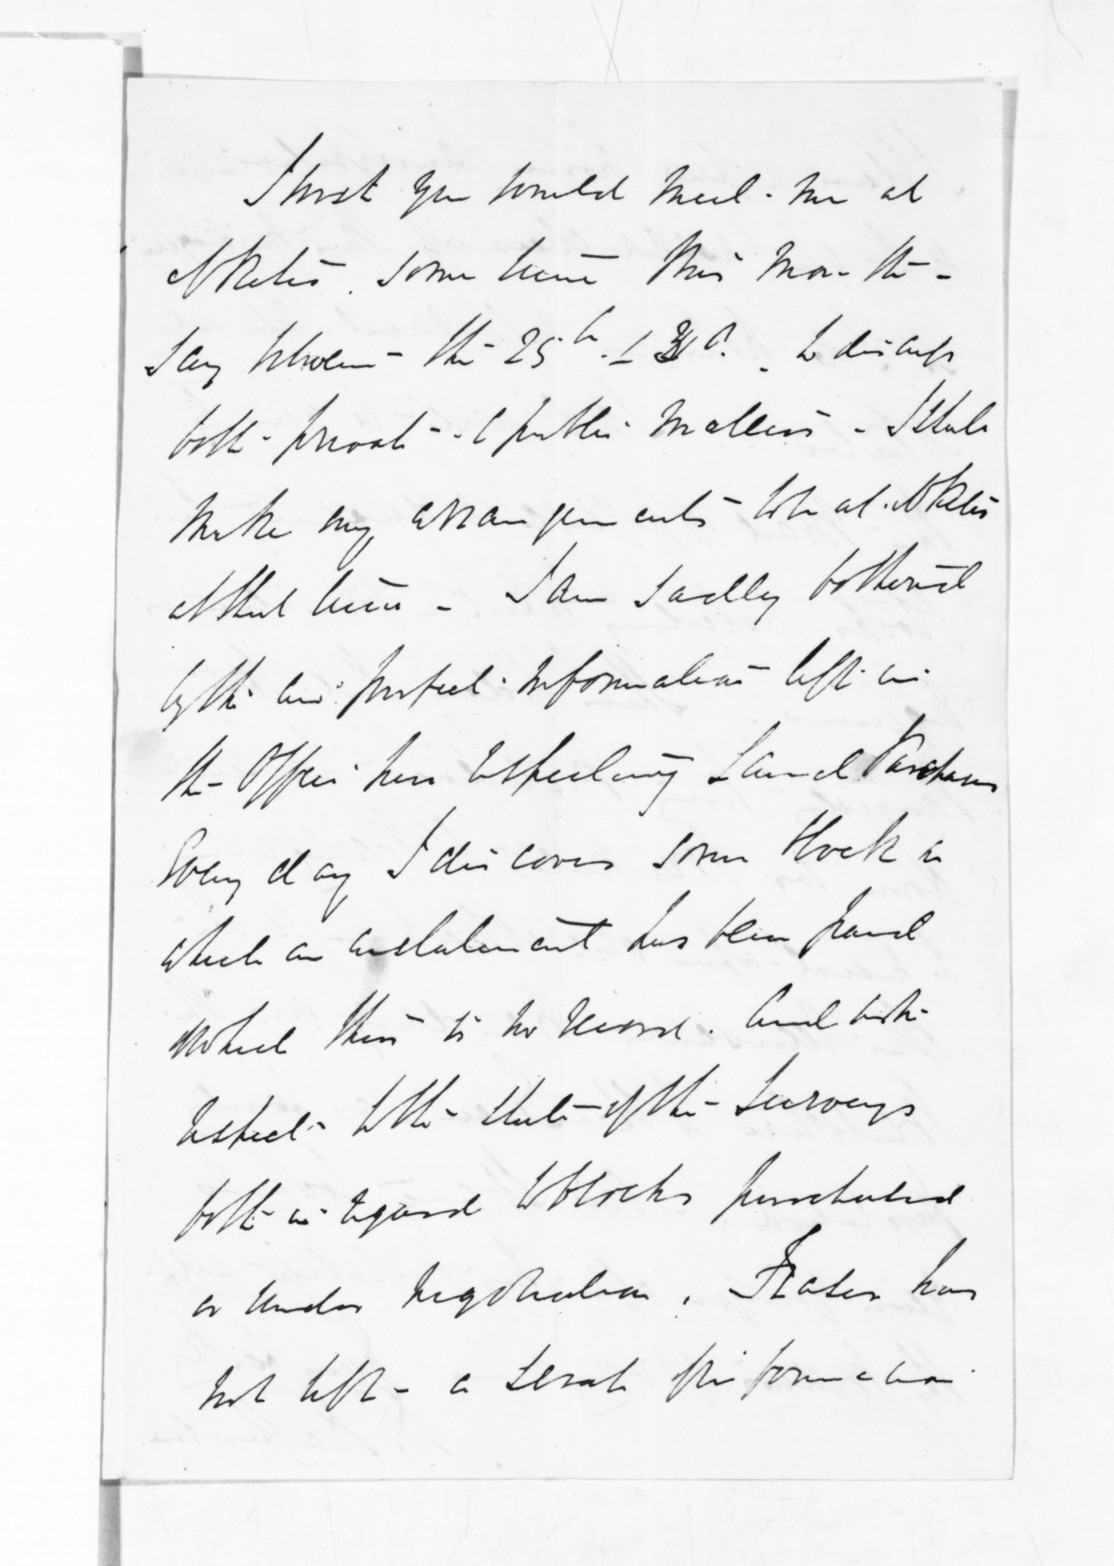 I wish you would meet me at
Oketu. some time this month -
say between the 25th & 31st. to discuss
both private & public matters - I shall
make my arrangements to be at Oketu
at that time - I am sadly bothered
by the imperfect information left in
the Office here respecting Land Purchases
Every day I discover some block on
which an instalment has been paid
of which there is no record. And with
respect to the state of the surveys
both in regard to blocks purchased
or under negotiation, Fraser has
not left a scrap of information